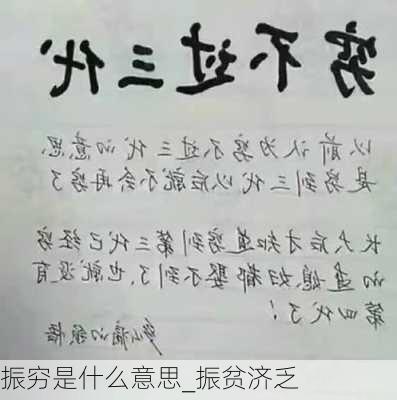 穷不过三代
以前认为穷不过三代的意思,
是穷到三代以后就不会再穷了
长大后才知道穷到第三代已经穷
的连媳妇都娶不到了,也就没有
第四代了!
多么痛的领悟
振穷是什么意思_振贫济乏